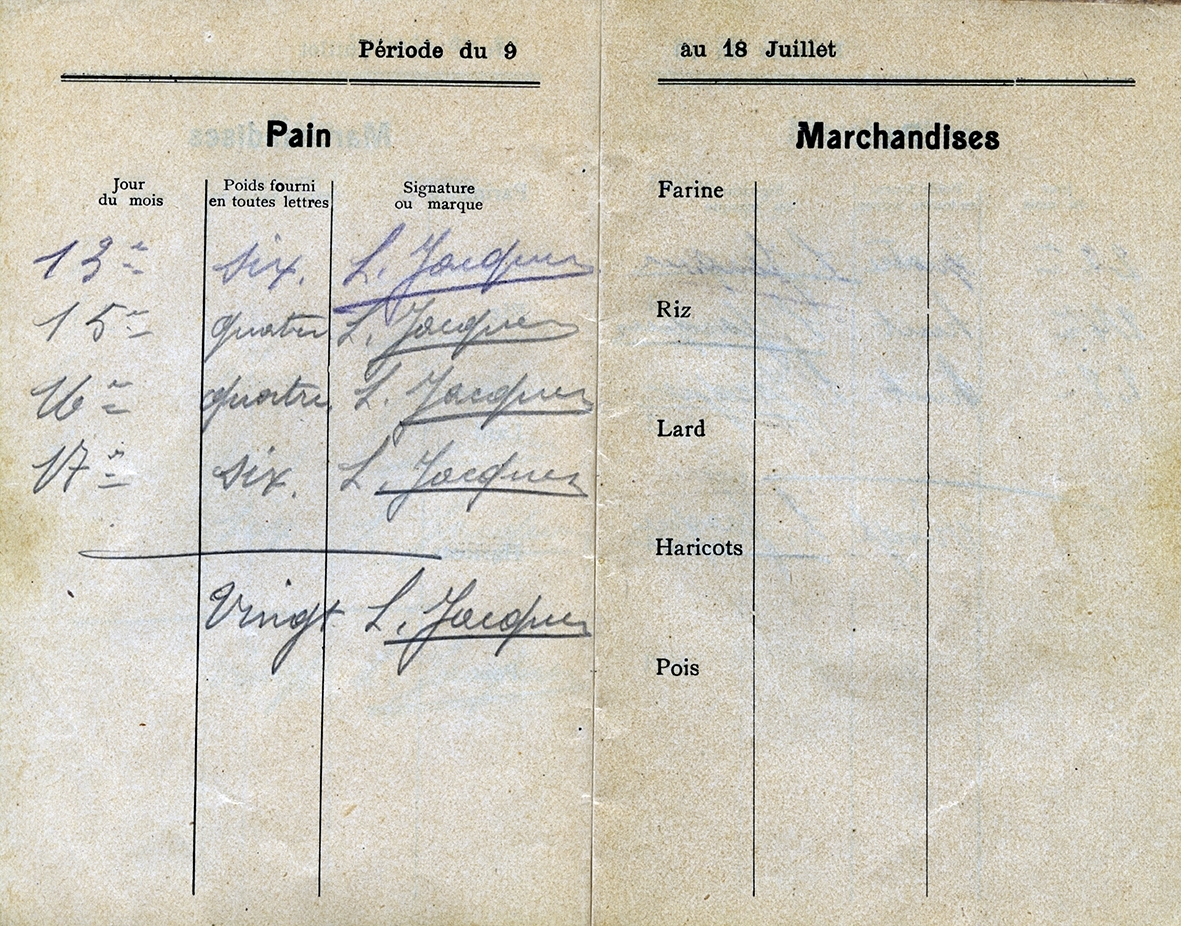 Période du 9
Pain
Jour du mois
Poids fourni en toutes lettres
Signature ou marque
13 six. L. Jacques
15 quatre L. Jacques
16 quatre L. Jacques
17 six. L. Jacques
Vingt L. Jacques
au 18 Juillet
Marchandises
Farine
Riz
Lard
Haricots
Pois